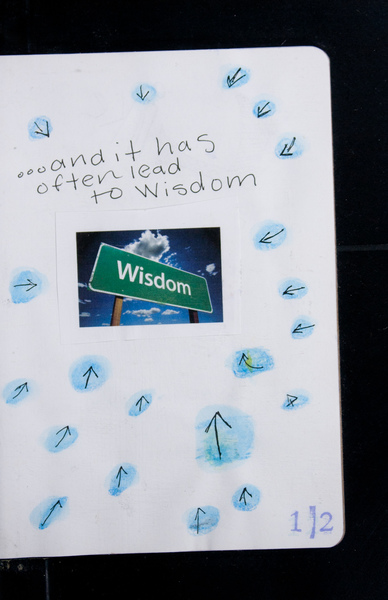 ...and it has
often lead
to Wisdom
Wisdom
1|2